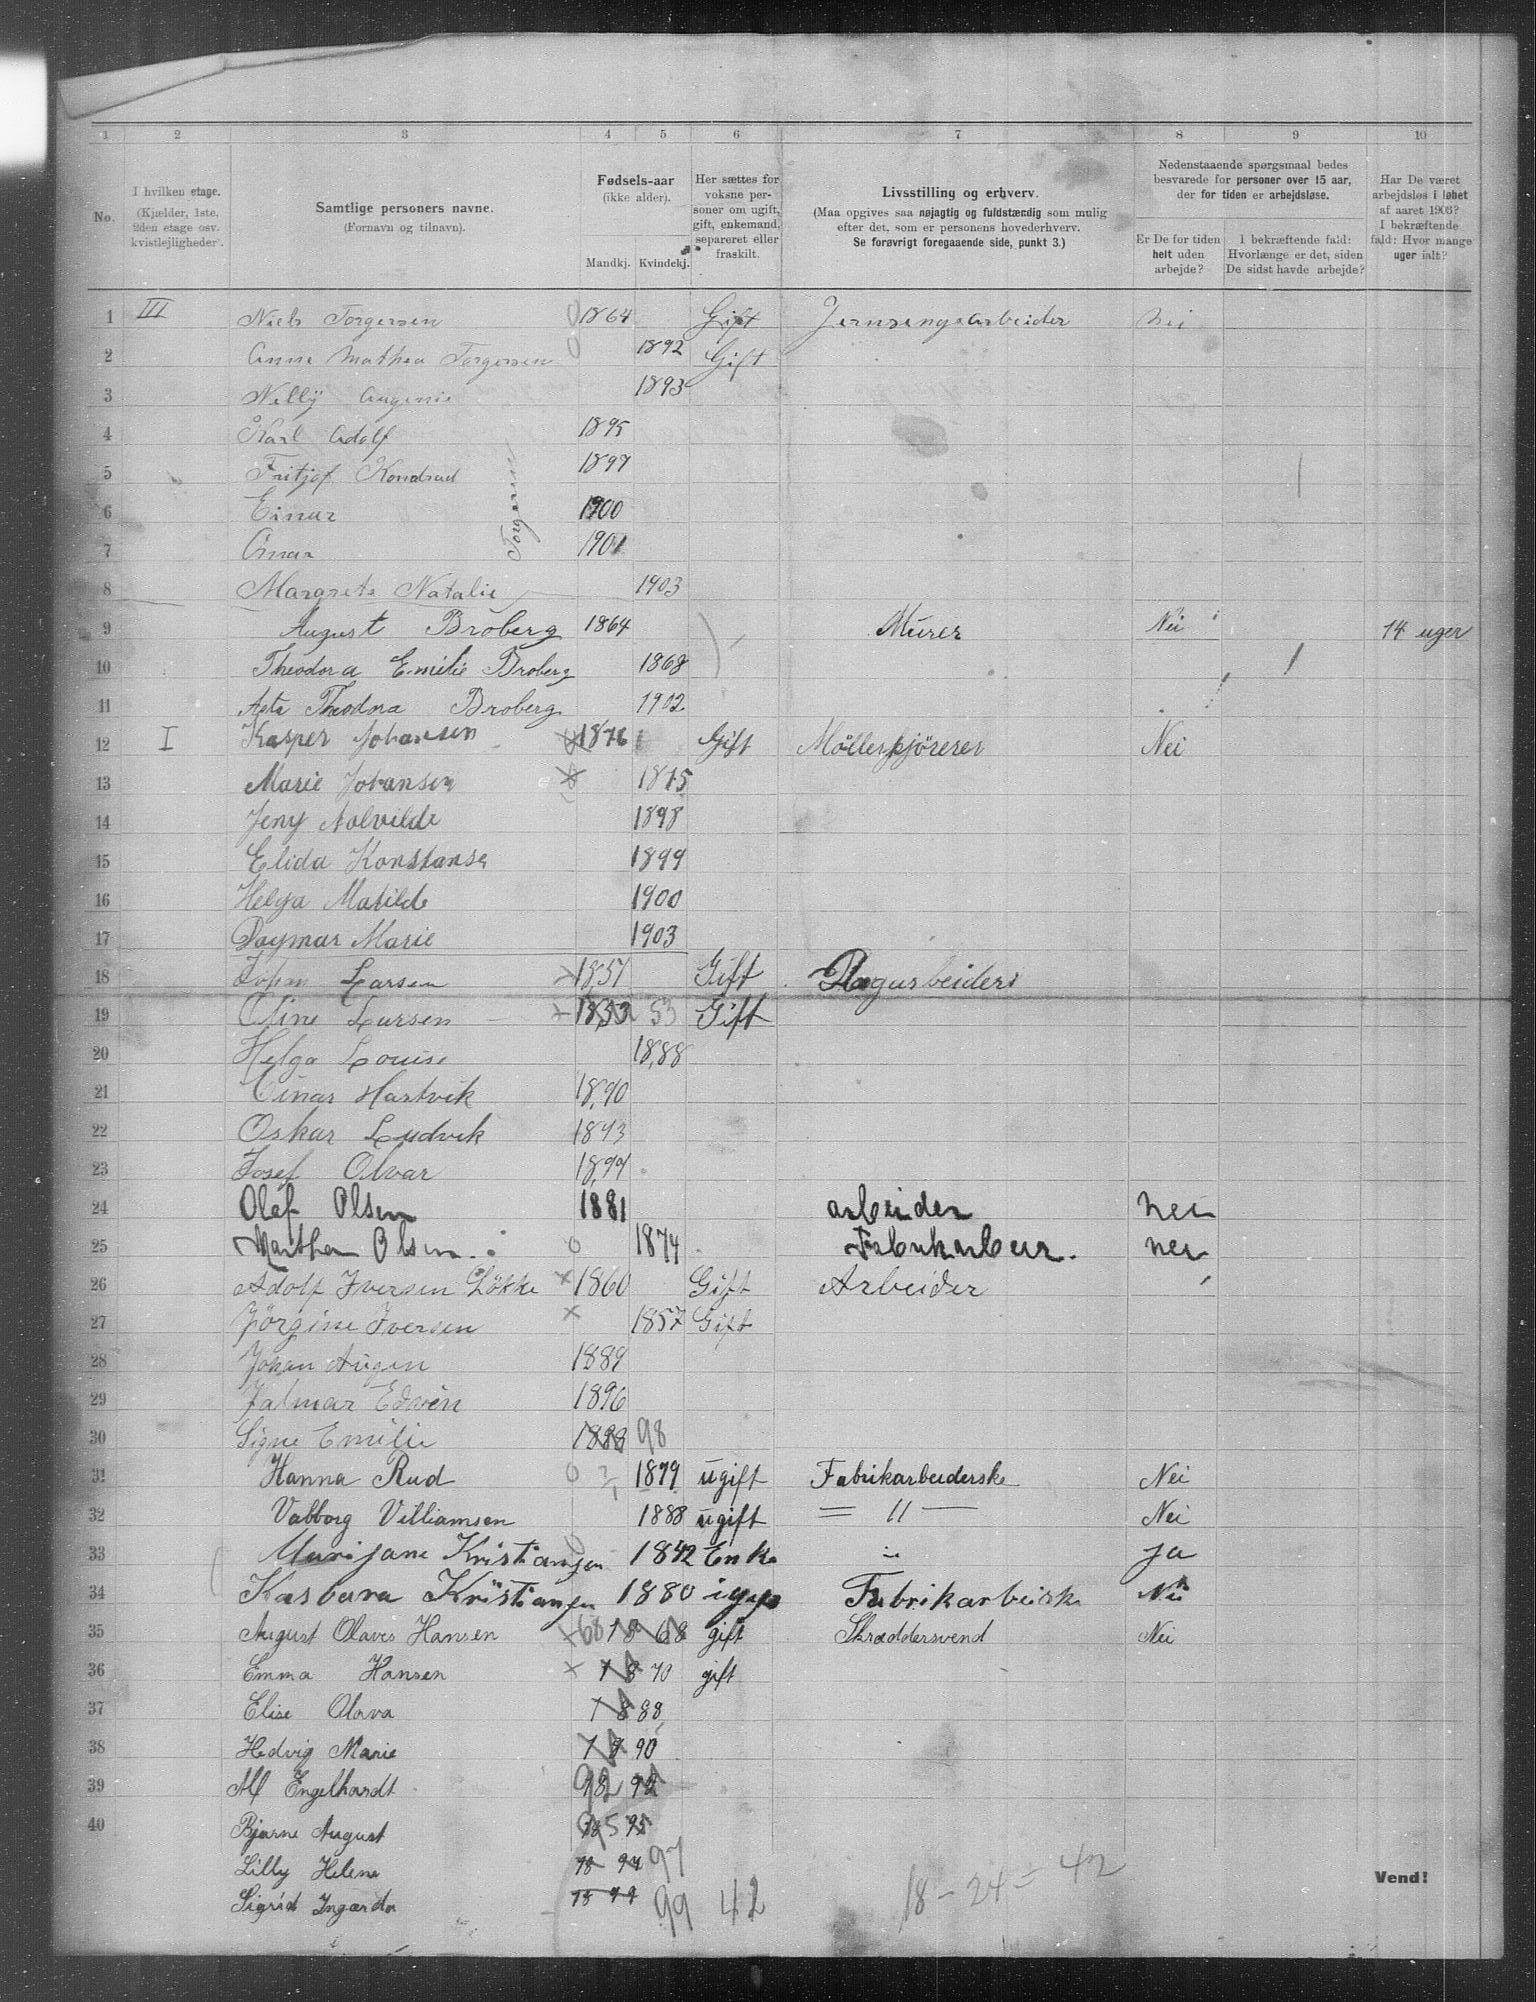 1 2 3 4 5 6 7 8 9 10
No.
I hvilken etage.
(Kjælder, 1ste, 2den etage osv. kvistlejligheder).
Samtlige personers navne.
(Fornavn og tilnavn).
Fødsels-aar
(ikke alder).
Mandkj. Kvindekj.
Her sættes for voksne personer om ugift, gift, enkemand, separeret eller fraskilt.
Livsstilling og erhverv.
(Maa opgives saa nøjagtig og fuldstændig som mulig efter det, som er personens hovederhverv.
Se forøvrigt foregaaende side, punkt 3.)
Nedenstaaende spørgsmaal bedes besvarede for personer over 15 aar, der for tiden er arbejdsløse.
Er De for tiden helt uden arbejde?
I bekræftende fald: Hvorlænge er det, siden De sidst havde arbejde?
Har De været arbejdsløs i løbet af aaret 1903? I bekræftende fald: Hvor mange uger ialt?
1 III Niels Torgersen 1864 Gift Jernsengsarbeider nei
2 Anne Mathea Torgersen 1892 Gift
3 Nelly Augenie 1893
4 Karl Adolf 1895
5 Fritjof Kondrad 1897
6 Einar 1900
7 1901
Torgersen
8 Margrete Natalie 1903
9 August Broberg 1864 Murer Nei 14 uger
10 Theodora Emilie Broberg 1868
11 Asta Theodora Broberg 1902
12 I Kasper Johansen 1876 Gift Møllerkjörerer Nei
13 Marie Johansen 1875
14 Jeny Nolvilde 1898
15 Elida Konstanse 1899
16 Helga Matilde 1900
17 Dagmar Marie 1903
18 Johan Larsen 1857 Gift
19 Oline Larsen 1853 53 Gift
20 Helga Louise 1888
21 Einar Hartvik 1890
22 Oskar Ludvik 1893
23 Josef Olvar
24 Olaf Olsen 1881 arbeider nei
25 Marthea Olsen 1874 nei
26 Adolf Iversen Løkke 1860 Gift Arbeider
27 Jörgine Iversen 1857 Gift
28 Johan Augen 1889
29 Jalmar Edvin 1896
30 Signe Emilie 1898 98
31 Hanna Rud 1879 ugift Fabrikarbeiderske Nei
32 Valborg Villiamsen 1888 ugift = 11 — Nei
33 Marijane Kristiansen 1842 Enke ja
34 Kasbara Kristiansen 1880 Fabrikarbeiske Nei
35 August Olaves Hansen 68 1868 gift Skræddersvend Nei
36 Emma Hansen 1870 gift
37 Elise Olava 1888
38 Hedvig Marie 1890
39 Alf Engelhardt 92 92
40 Bjarne August 95 95
Lilly Helene 18 97 97
Sigrid Ingarda 18 99 99 42
18 - 24 = 42
Vend!